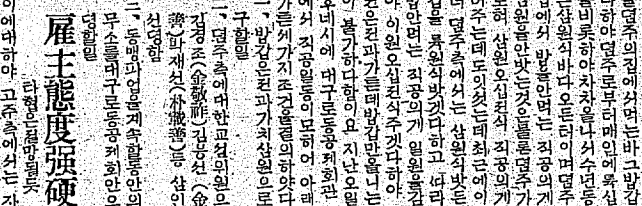 덤주의집에서먹는바그밥갑
다하야덤주로부터매인에륙십
을비롯하야차차올나서수년동
는삼원식바다오든터이며덤주
집에서밥을안먹는직공의게
원을안밧는것은물론덤주가
도혀삼원오십전식직공의게
어주는데도잇섯는데최근에이
너덤주측에서는삼원식밧든
갑을륙원식밧겟다하고따라
밥안먹는직공의게일원을감
야이원오십전식주겟다하야
전은전과가튼데밥갑만올니는
이불가하다함이요지난오일
오네시에대구로동공제회관
에서직공일동이모히어아래
가튼세가지조건을결의하얏다
一、밥갑은전과가치삼원으로
구할일
一、덤주측에대한교섭위원으로
김경조(金敬祚)김봉선(金
善)파재선(朴載善)등삼인
선뎡함
一、동맹파업을계속할동안의
무소를대구로동공제회안으
뎡할일
雇主態度强硬
타협은절망될듯
이에대하야고주측에서는자